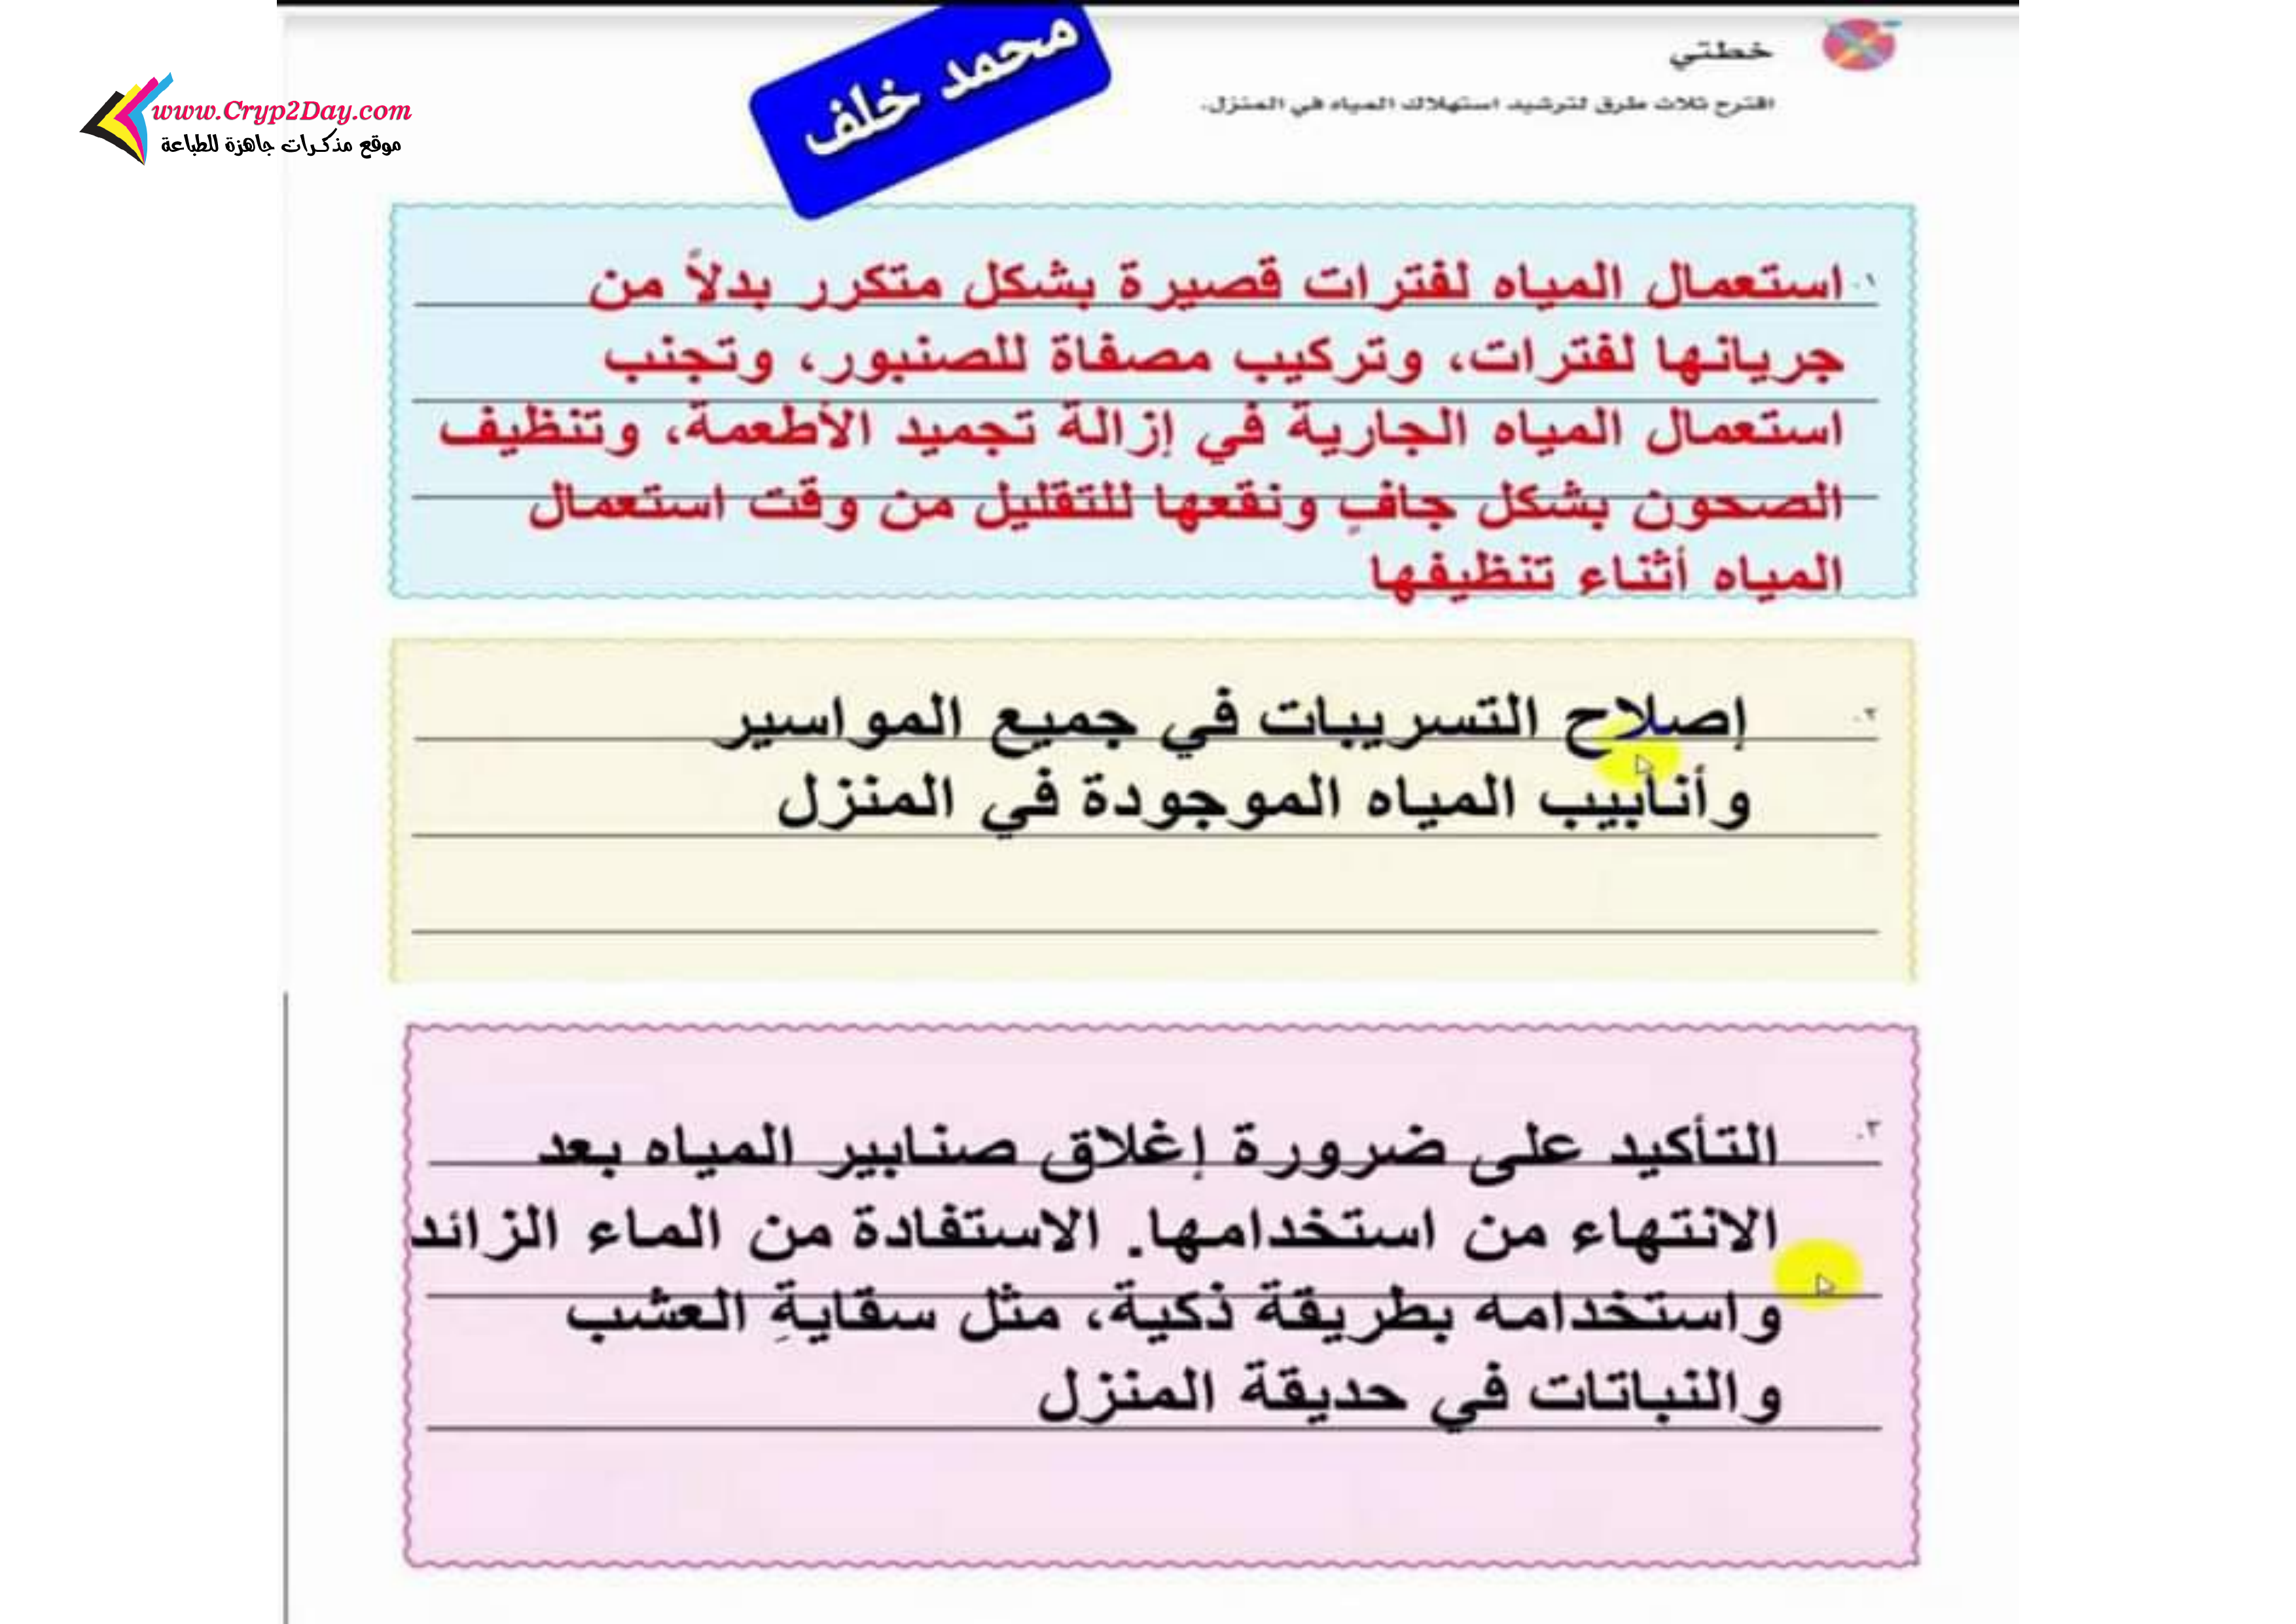 محمد خلف
www.Cryp2Day.com
موقع مذكرات جاهزة للطباعة
خطتي
اقترح ثلاث طرق لترشيد استهلاك المياه في المنزل.
١. استعمال المياه لفترات قصيرة بشكل متكرر بدلاً من
جريانها لفترات، وتركيب مصفاة للصنبور، وتجنب
استعمال المياه الجارية في إزالة تجميد الأطعمة، وتنظيف
الصحون بشكل جافٍ ونقعها للتقليل من وقت استعمال
المياه أثناء تنظيفها
٢. إصلاح التسريبات في جميع المواسير
وأنابيب المياه الموجودة في المنزل
٣. التأكيد على ضرورة إغلاق صنابير المياه بعد
الانتهاء من استخدامها. الاستفادة من الماء الزائد
واستخدامه بطريقة ذكية، مثل سقايةِ العشب
والنباتات في حديقة المنزل